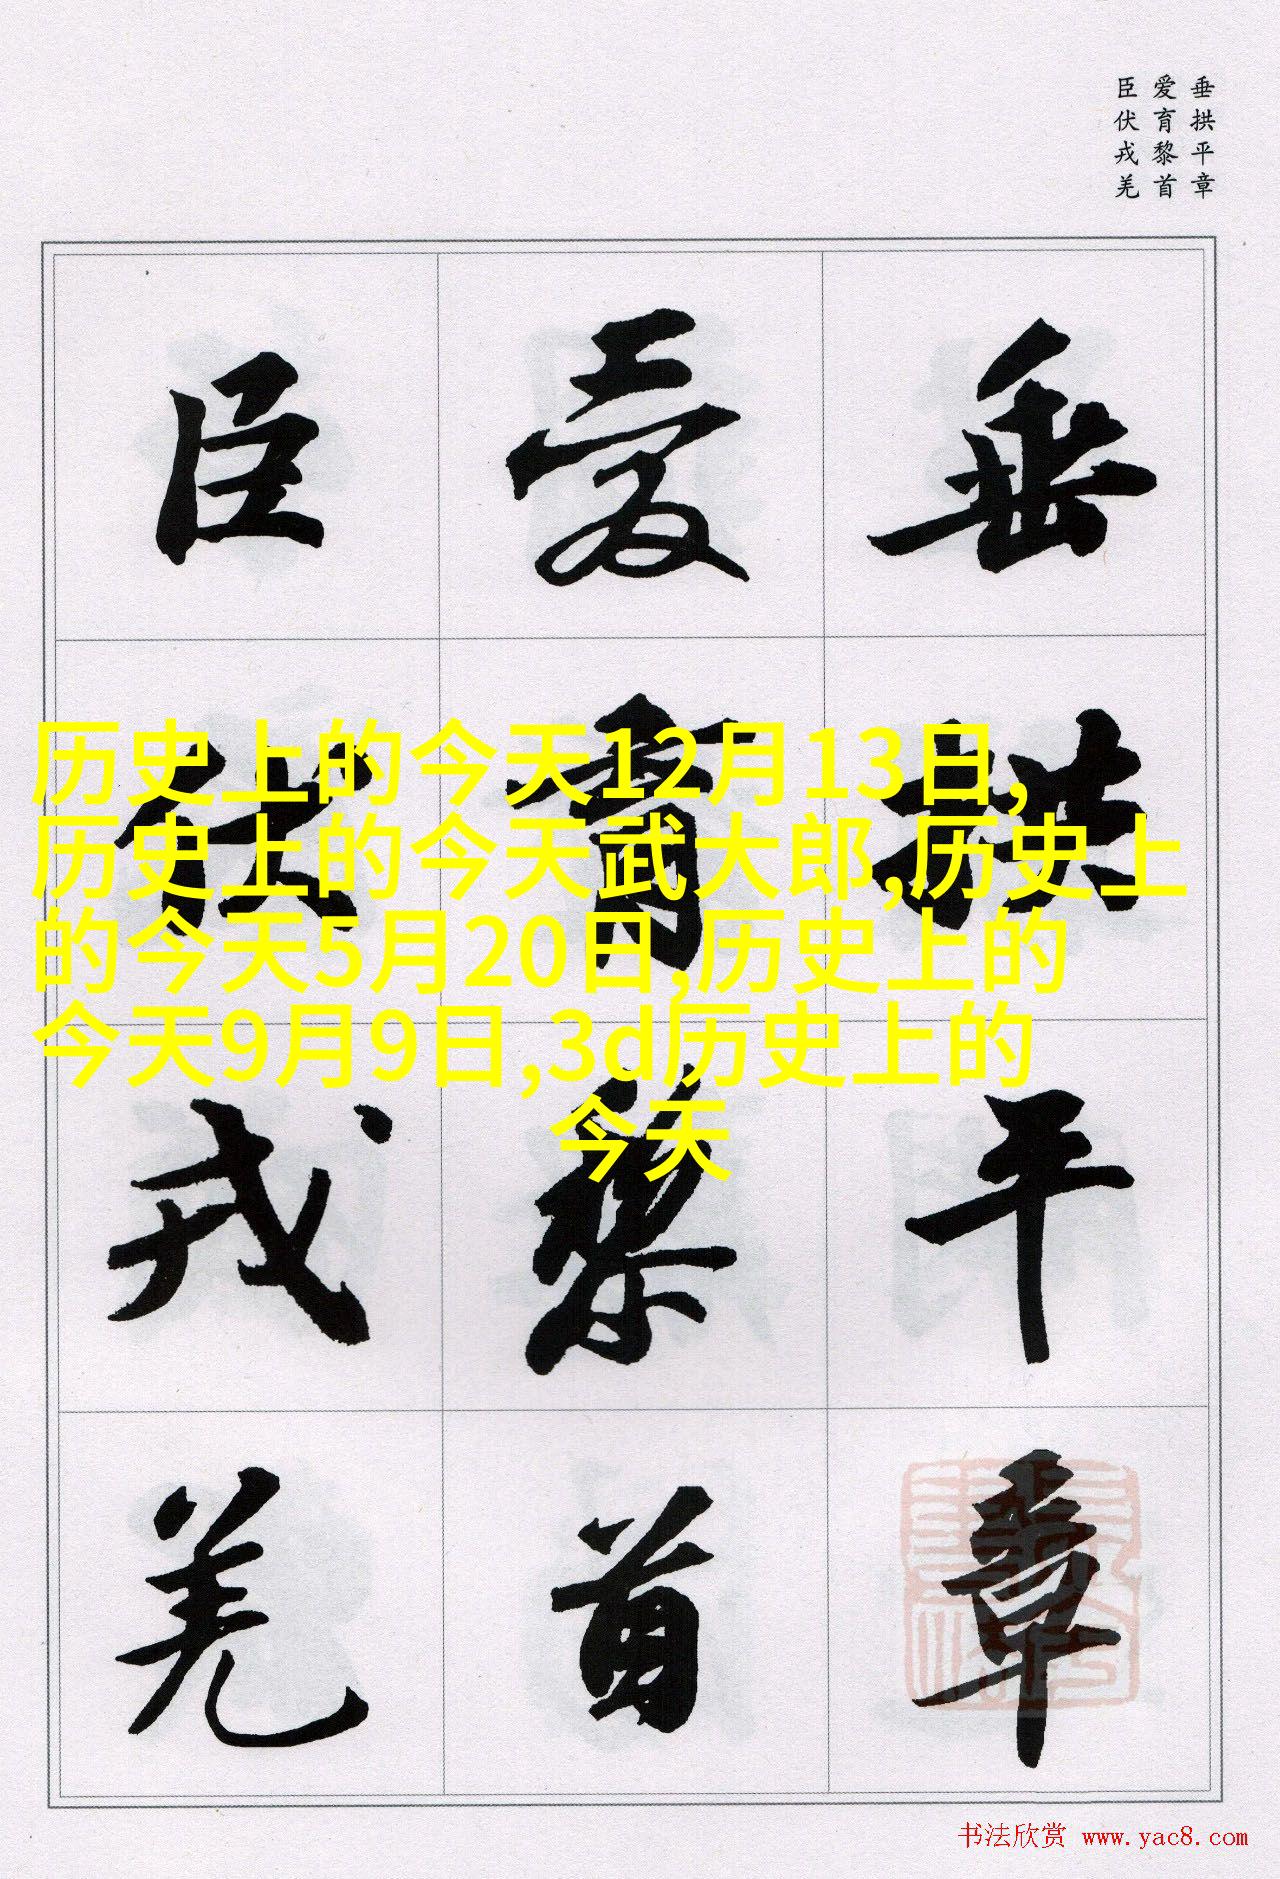 垂拱平章
爱育黎首
臣伏戎羌
垂拱平章
爱育黎首
臣伏戎羌
历史上的今天12月13日,
历史上的今天武大郎,历史上
的今天5月20日,历史上的
今天9月9日,3d历史上的
今天
书法欣赏 www.yac8.com